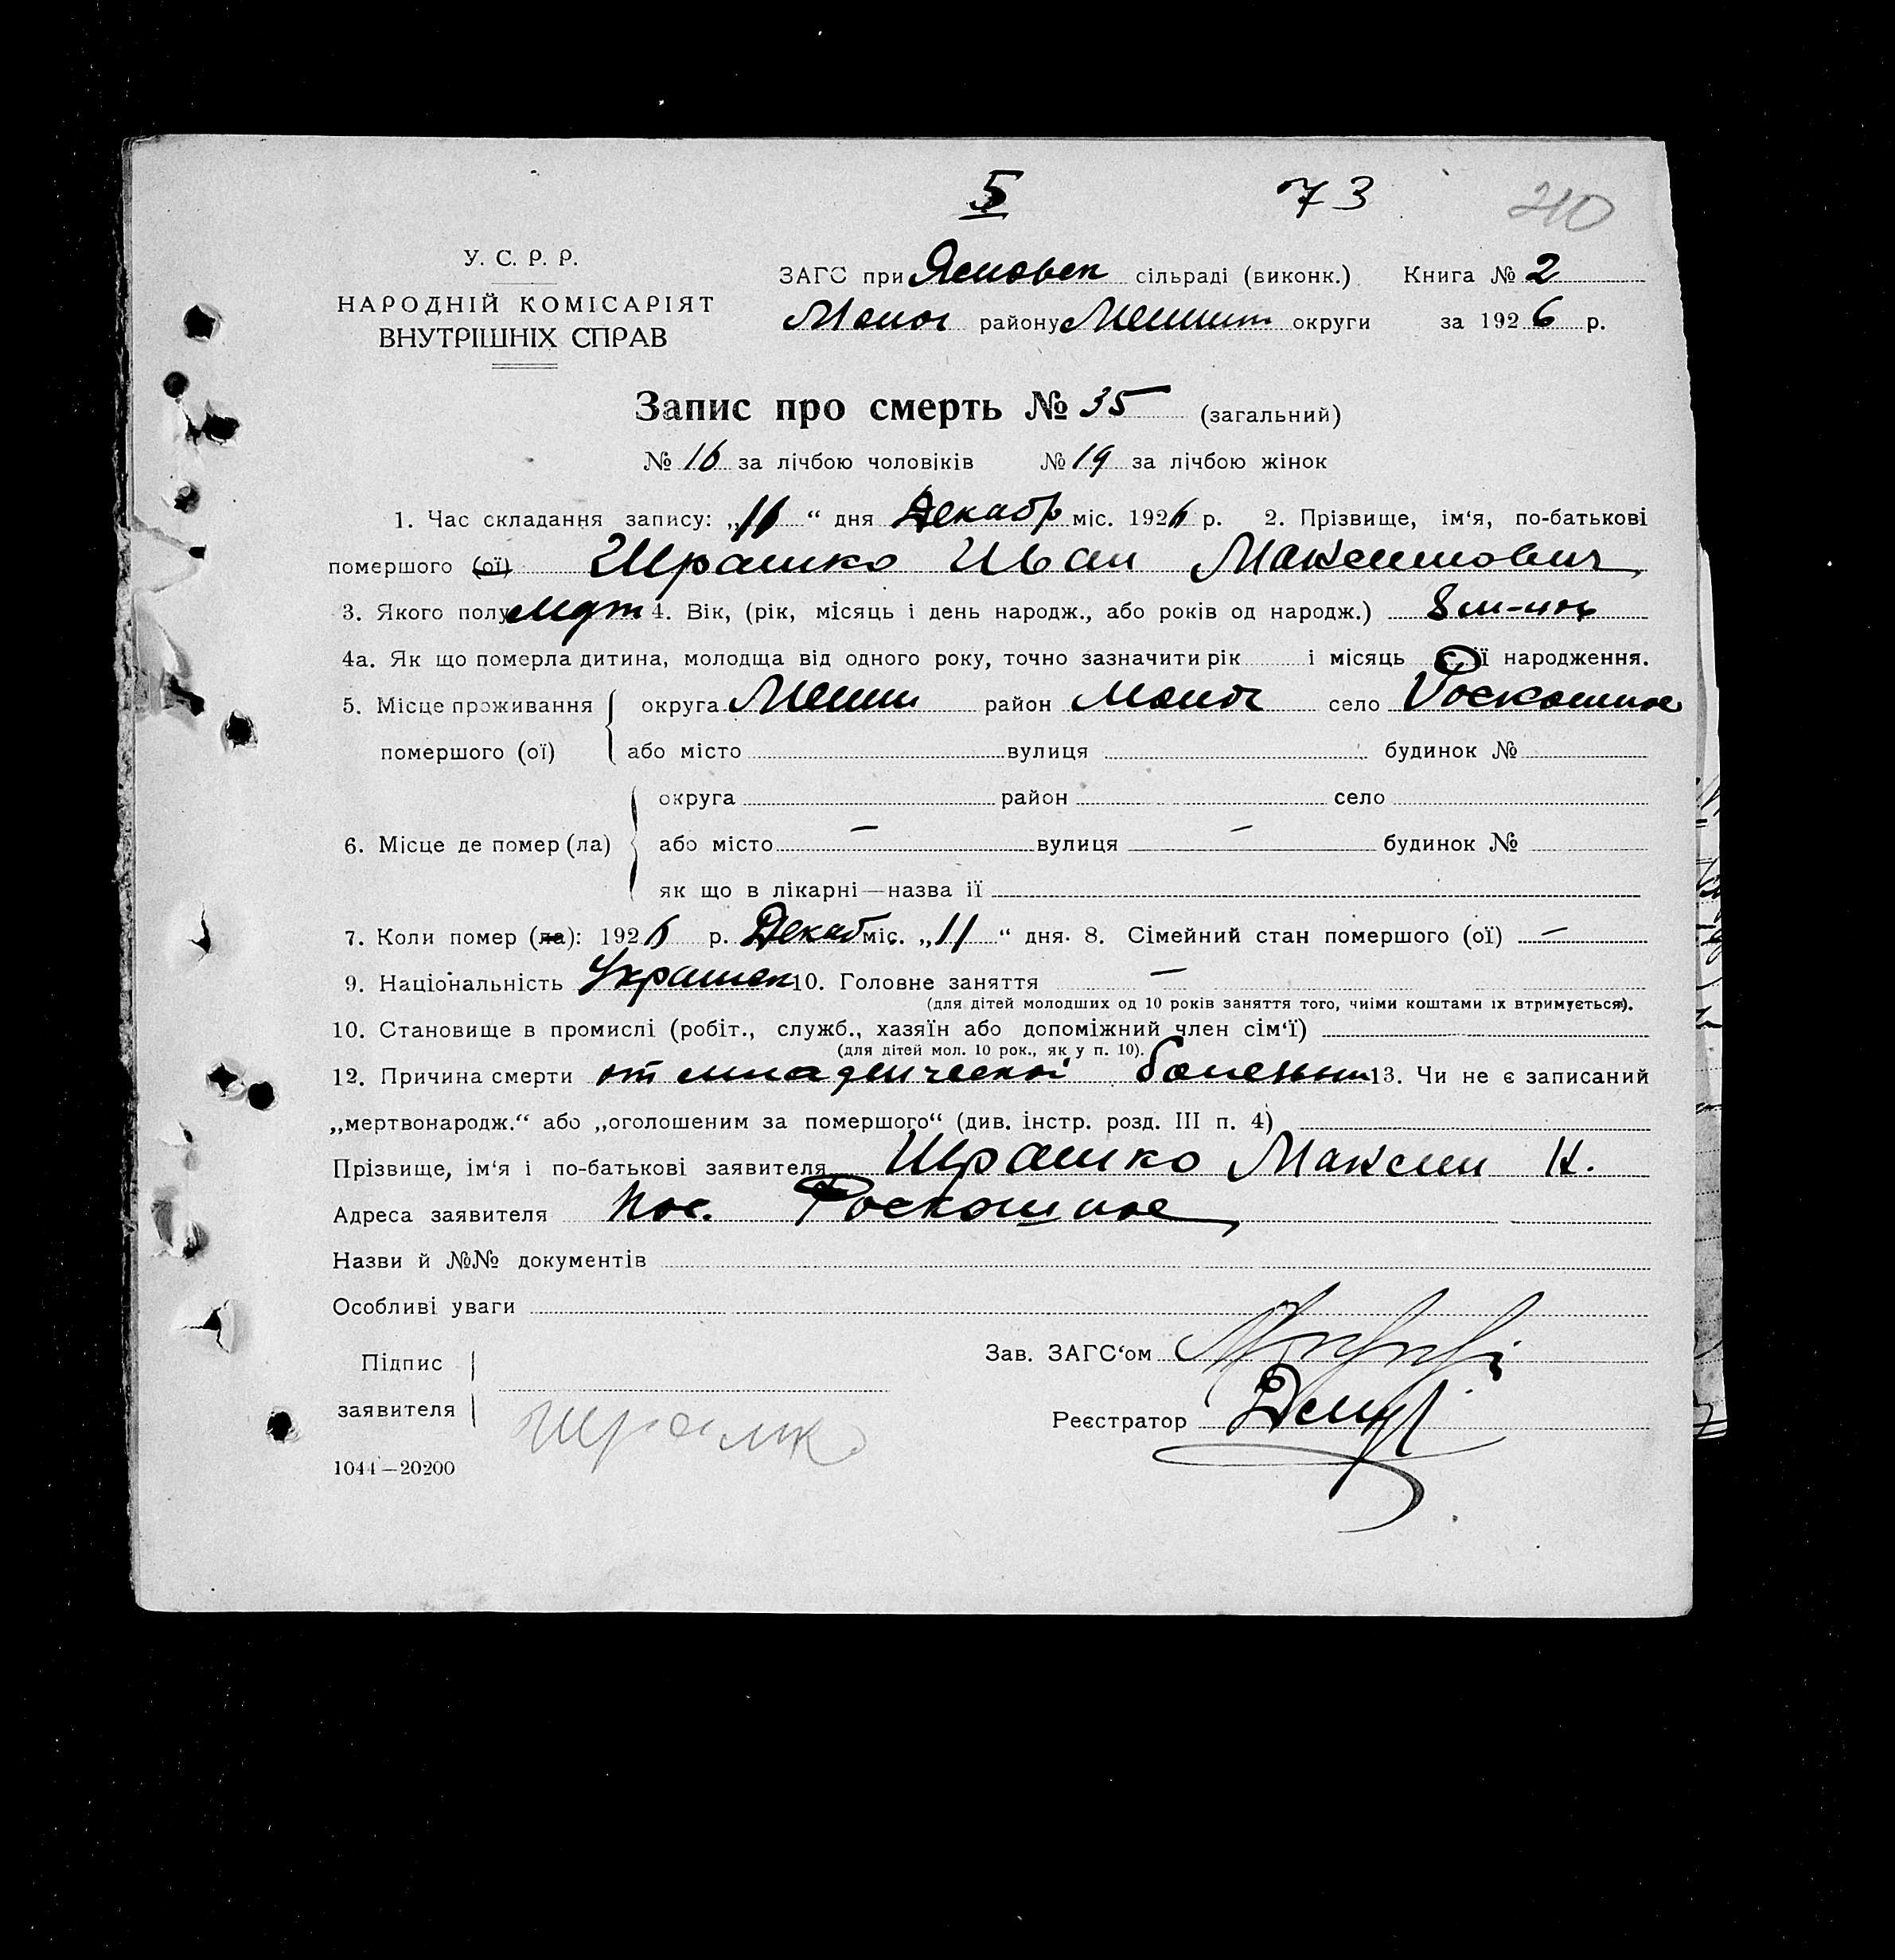 5 73 210
У. С. Р. Р.
НАРОДНІЙ КОМІСАРІЯТ
ВНУТРІШНІХ СПРАВ
ЗАГС при Ясиновск сільраді (виконк.) Книга № 2
району округи за 1926 р.
Запис про смерть № 35 (загальний)
№ 16 за лічбою чоловіків № 19 за лічбою жінок
1. Час складання запису: „11“ дня Декабр міс. 1926 р. 2. Прізвище, ім‘я, по-батькові
помершого (ої) Шрамко Иван Максимович
3. Якого полу 4. Вік, (рік, місяць і день народж., або років од народж.) 8 м-цев
4а. Як що померла дитина, молодща від одного року, точно зазначити рік і місяць її народження.
5. Місце проживання округа район село Роскошное
помершого (ої) або місто вулиця будинок №
округа район село
6. Місце де помер (ла) або місто — вулиця — будинок №
як що в лікарні—назва її
7. Коли помер (ла): 1926 р. Декаб міс. „11“ дня. 8. Сімейний стан помершого (ої) —
9. Національність Украинец 10. Головне заняття —
(для дітей молодших од 10 років заняття того, чиїми коштами їх втримується).
10. Становище в промислі (робіт., служб., хазяїн або допоміжний член сім‘ї)
(для дітей мол. 10 рок., як у п. 10).
12. Причина смерти от младенческой болезни 13. Чи не є записаний
„мертвонародж.“ або „оголошеним за помершого“ (див. інстр. розд. III п. 4)
Прізвище, ім‘я і по-батькові заявителя Шрамко Максим И.
Адреса заявителя пос. Роскошное
Назви й №№ документів
Особливі уваги
Підпис
заявителя Шрамко
Зав. ЗАГС‘ом
Реєстратор
1044—20200